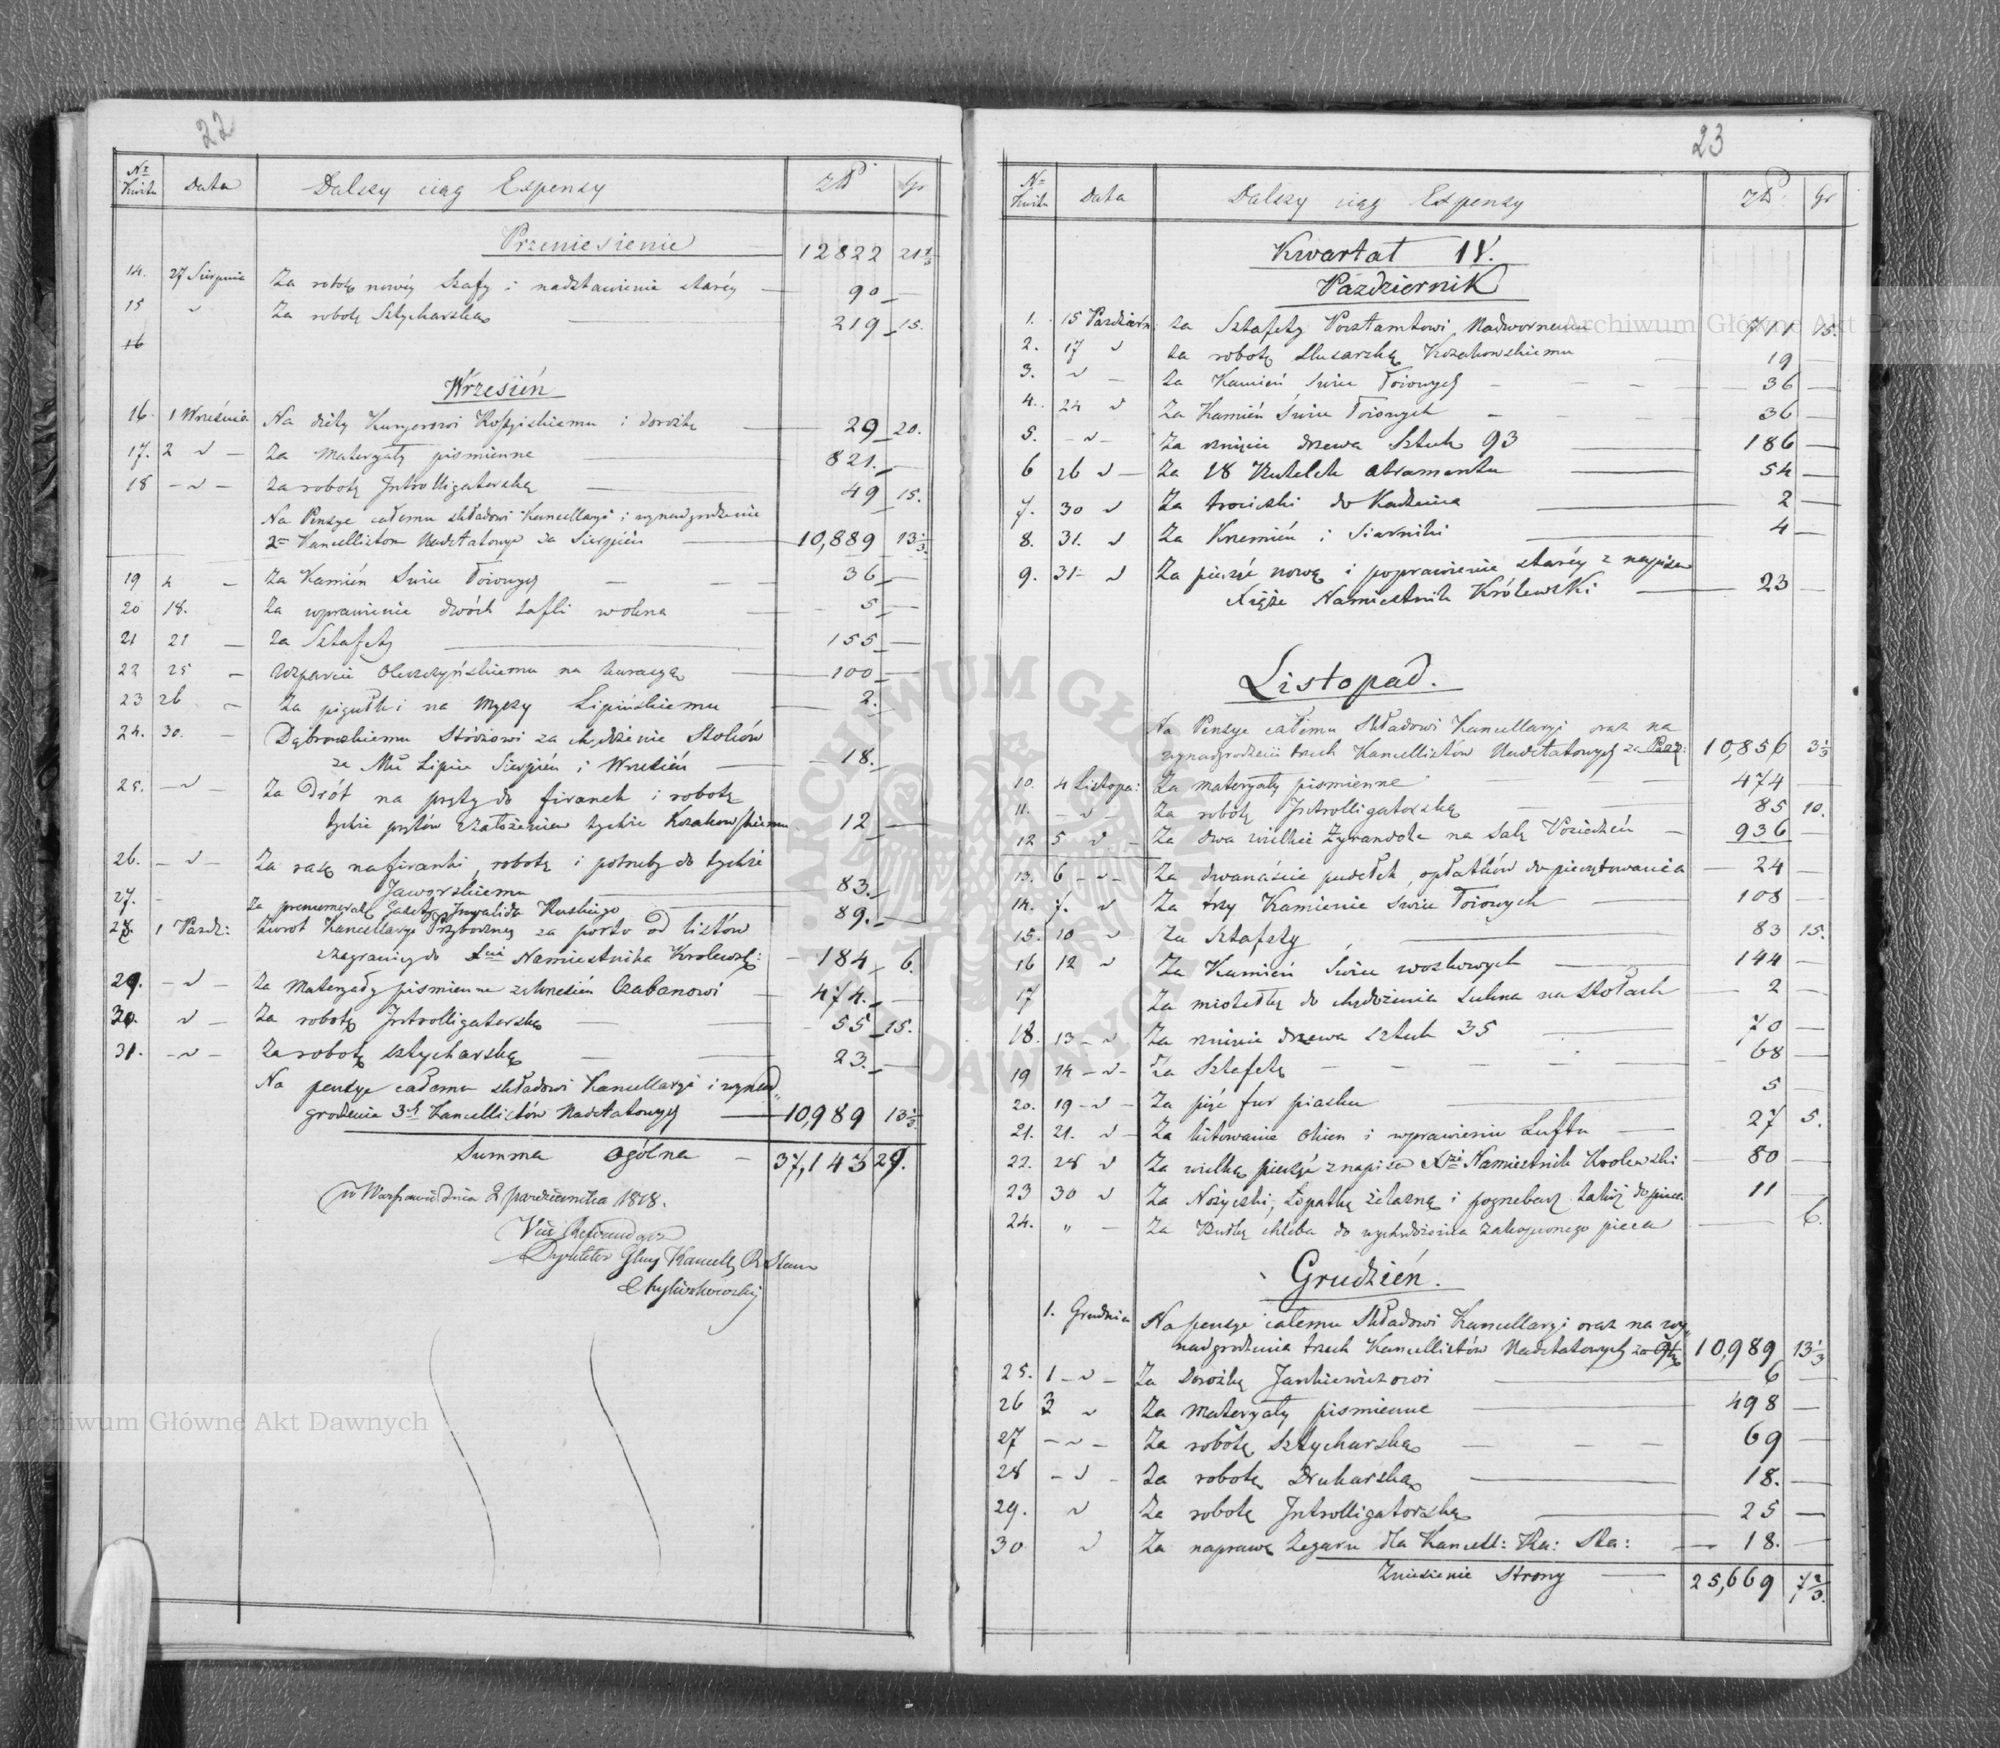 22
Nr Kwitu Data Dalszy ciąg Expensy zł gr
Przeniesienie 12822 21 1/3
14. 27 Sierpnia Za robotę nowéy Szafy i nadstawienie staréy — 90 —
15 " Za robotę Sztycharską — 219 15.
16
Wrzesień
16. 1 Września Na diety Kuryerowi i dorożkę — 29 20.
17. 2 " — Za materyały pismienne — 821. —
18 — " — Za robotę Introlligatorską — 49 15.
Na Pensye całemu składowi Kancellaryi i wynadgrodzenie
2ch Kancellistom Nadetatowym za Sierpień — 10,889 13 1/3
19 4 — Za Kamień Świec Łoiowych — 36 —
20 18. Za wprawienie dwóch tafli w okna — 5 —
21 21 — Za Sztafety — 155 —
22 25 — Wsparcie Oleszczyńskiemu na kuracyą — 100 —
23 26 — Za pigułki na Myszy Lipińskiemu — 2. —
24. 30. — Dąbrowskiemu Stróżowi za chędożenie Stołów
za Mc Lipiec Sierpień i Wrzesień — 18. —
25. — " — Za Drót na pręty do firanek i robotę
tychże prętów założenia tychże Kozakowskiemu 12 —
26. — " — Za rasę na firanki, robotę i potrzeby do tychże
Jaworskiemu — 83. —
27. — Za prenumeratę Gazety Inwalida Ruskiego — 89. —
28. 1 Pazdz: Zwrot Kancellaryi Przyboczney za porto od listów
z zagranicy do Xcia Namiestnika Krolewsk: — 184 6.
29. — " — Za Materyały pismienne Czabanowi — 474. —
30. " — Za robotę Introlligatorską — 55 15.
31. — " — Za robotę sztycharską — 23. —
Na pensye całemu składowi Kancellaryi i wynad
grodzenia 3ch Kancellistów Nadetatowych — 10,989 13 1/3
Summa ogólna — 37,143 29.
w Warszawie dnia 2 pazdziernika 1818.
Vice Referendarz
Dyrektor Kancell R Stanu
23
Nr Kwitu Data Dalszy ciąg Expensy zł. gr
Kwartał IV.
Pazdziernik
1. 15 Pazdziern: za Sztafety Pocztamtowi Nadwornemu 711 15.
2. 17 " za robotę Slusarską Kozakowskiemu 19 —
3. " — za Kamień Swiec Łoiowych — 36 —
4. 24 " Za Kamień Świec Łoiowych — 36 —
5. — " — Za rznięcie drzewa Sztuk 93 — 186 —
6 26 " — Za 18 Butelek atramentu — 54 —
7. 30 " Za trociczki do Kadzenia — 2 —
8. 31. " Za Krzemień i Siarniki — 4 —
9. 31 — " Za pieczęć nową i poprawienie staréy z napisem
Xiąże Namiestnik Królewski — 23 —
Listopad.
Na Pensye całemu Składowi Kancellaryi oraz na
wynadgrodzenie trzech Kancellistów Nadetatowych za Paz: 10,856 3 1/3
10. 4 Listopa: Za materyały pismienne — 474 —
11. — " — Za robotę Introlligatorską — 85 10.
12 5 " — Za dwa wielkie Żyrandole na Salę Posiedzeń — 936 —
13. 6 — " — Za dwanaście pudełek opłatków do pieczętowania — 24 —
14. 7. " Za trzy Kamienie świec Łoiowych — 108 —
15. 10 " Za Sztafety — 83 15.
16 12 " Za Kamień Świec woskowych — 144 —
17 Za miotełkę do chędożenia Sukna na Stołach — 2 —
18. 13 — " Za rznięcie drzewa sztuk 35 — 70 —
19 14 — " — Za Sztafetę — 68 —
20. 19 — " — Za pięć fur piasku — 5 —
21. 21. " — Za kitowanie okien i wprawienie Luftu — 27 5.
22. 28 " Za wielką pieczęć z napisem Xże Namiestnik Krolewski — 80 —
23 30 " Za Nożyczki, Łopatkę żelazną i pogrzebacz takiż do pieca 11 —
24. " — Za chleba do wychędożenia zakopconego pieca — 6.
Grudzień.
1. Grudnia Na pensye całemu Składowi Kancellaryi oraz na wy
nadgrodzenia trzech Kancellistów Nadetatowych za 10,989 13 1/3
25. 1 — " — Za Dorożkę Jankiewiczowi — 6 —
26 3 " Za Materyały pismienne — 498 —
27 — " — Za robotę Sztycharską — 69 —
28 — " — Za robotę Drukarską — 18. —
29. " Za robotę Introlligatorską — 25 —
30 " Za naprawę Zegaru dla Kancell: Ra: Sta: — 18. —
Zniesienie Strony — 25,669 7 2/3
Archiwum Główne Akt Dawnych
Archiwum Główne Akt Dawnych